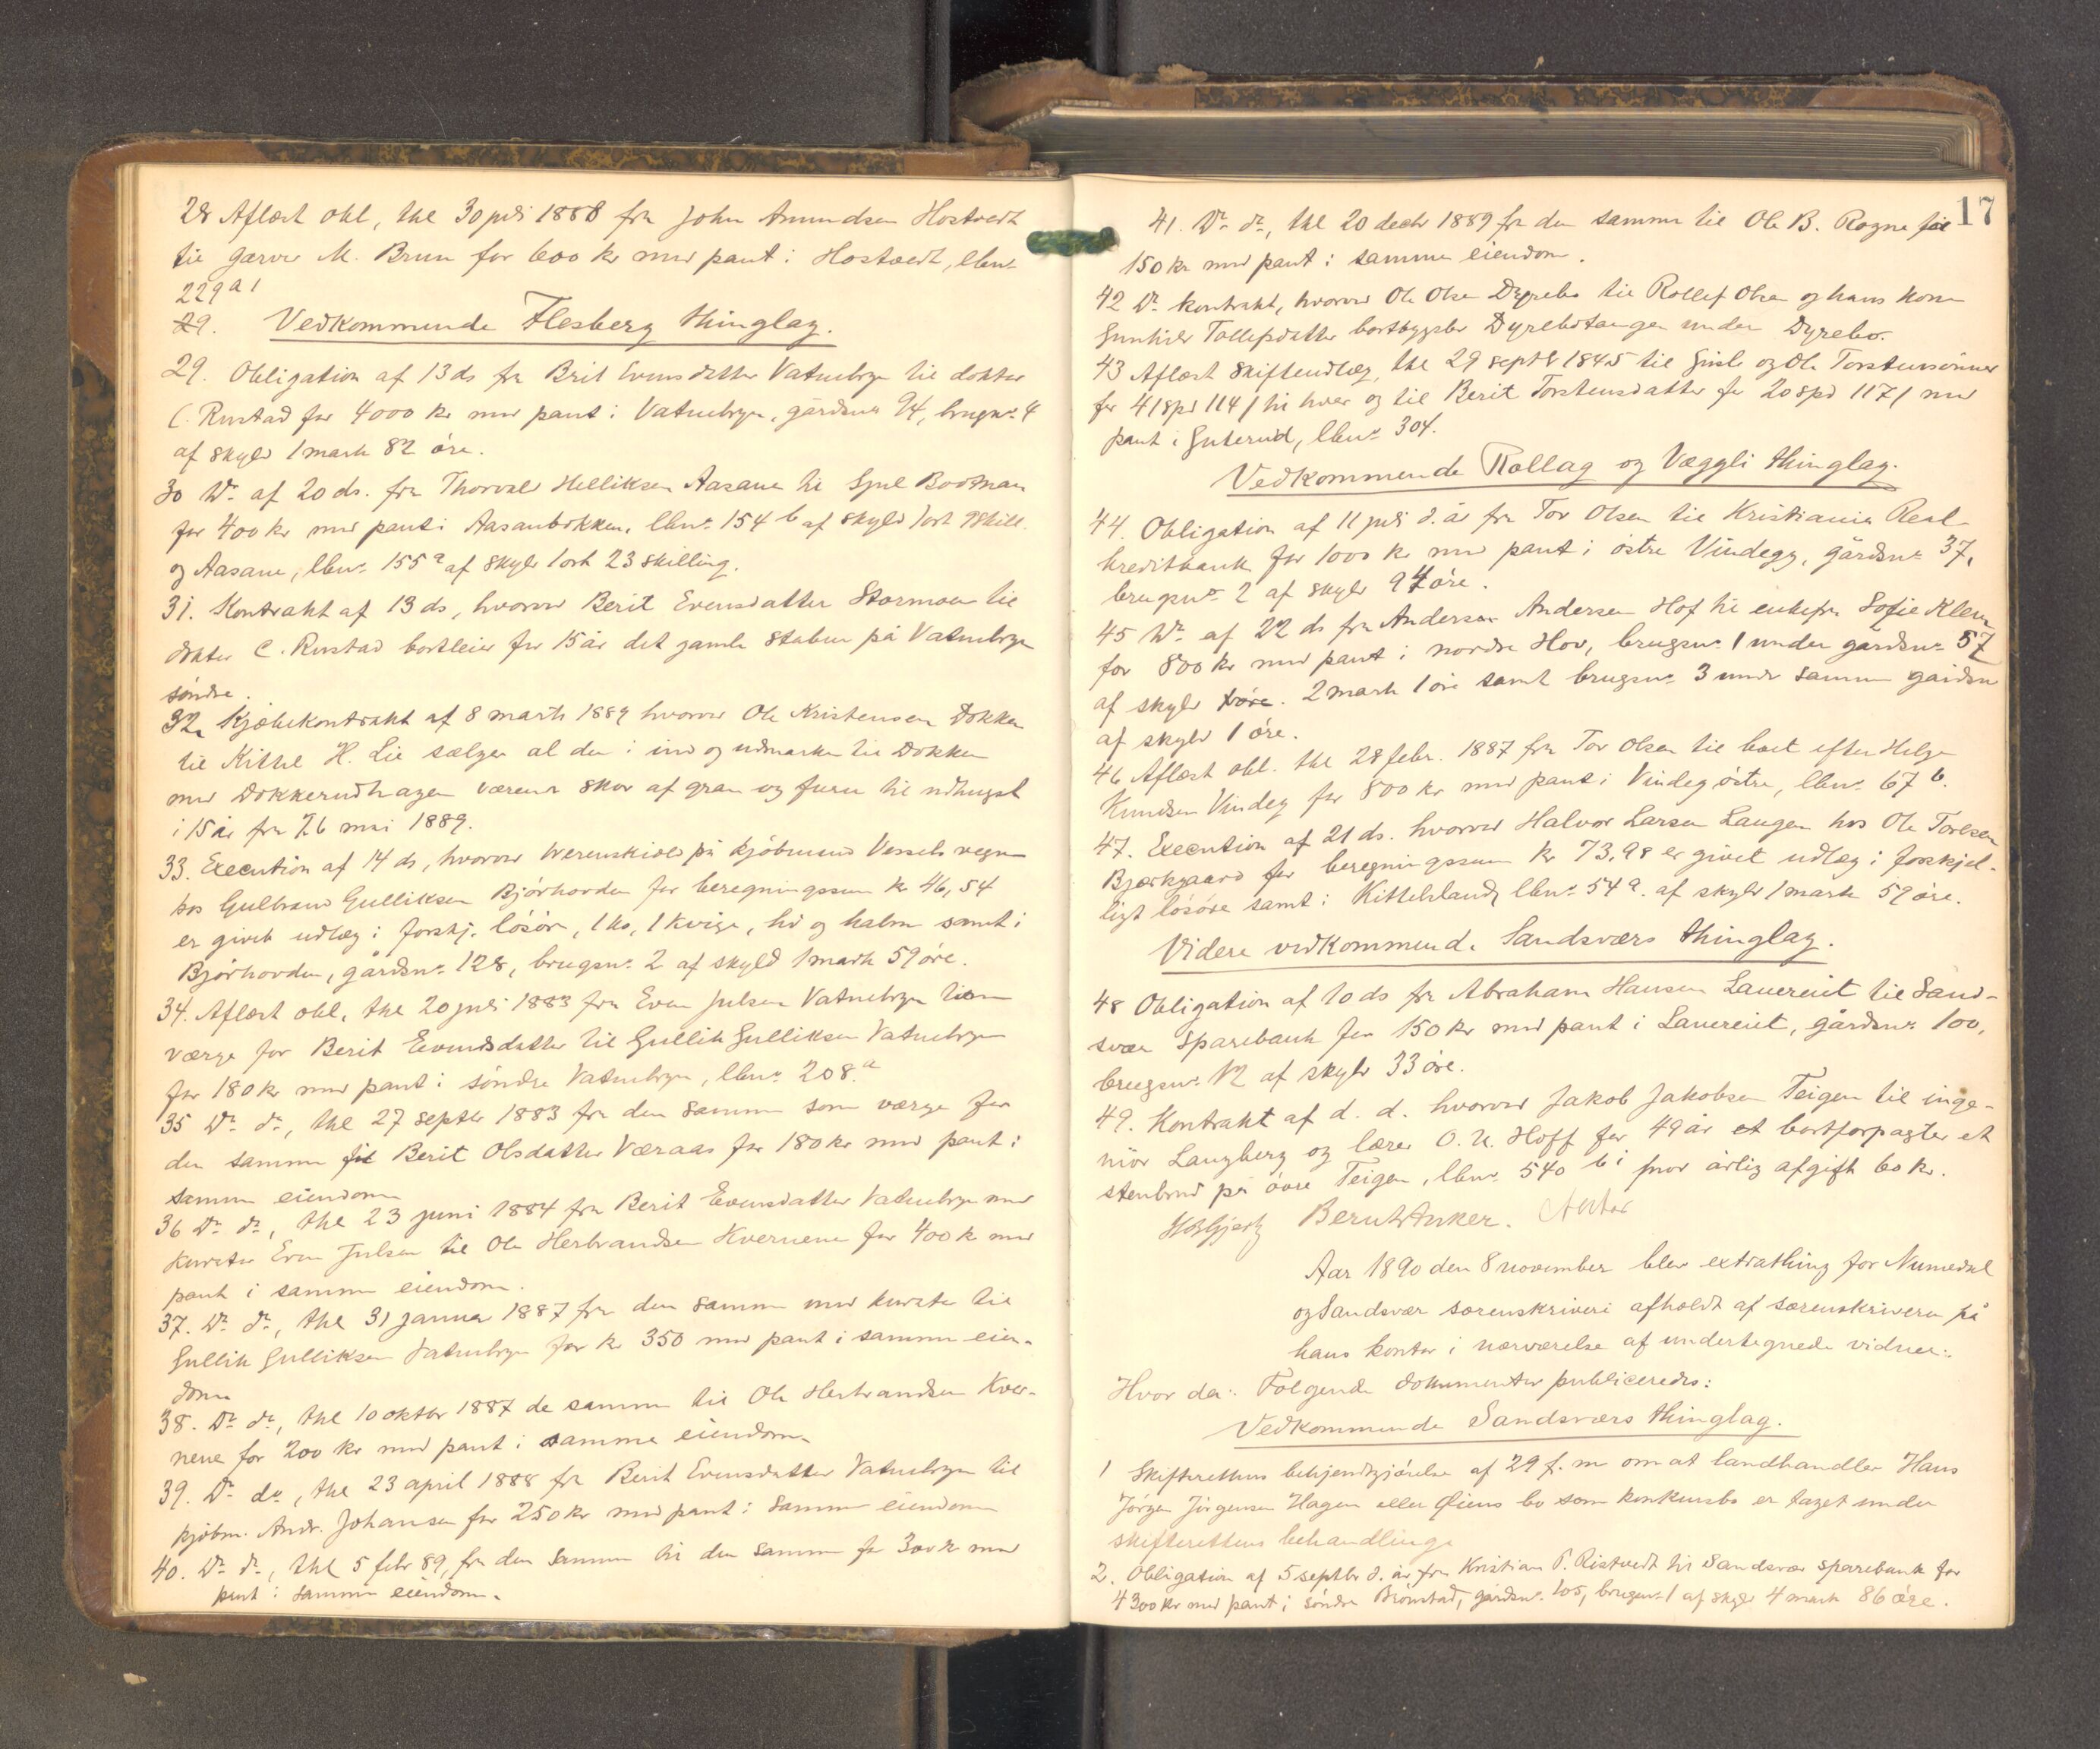 28 Aflæst obl, thl 30 juli 1888 fra John Amundsen Hostvedt
til garver M. Brun for 600 kr med pant i Hostvedt, lbnr
229 a 1
29. Vedkommende Flesberg thinglag.
29. Obligation af 13 ds fra Brit Evensdatter Vatnebryn til doktor
C. Rustad for 4000 kr med pant i Vatnebryn, gårdsnr 94, brugnr 4
af skyld 1 mark 82 øre.
30 Do af 20 ds. fra Thorvald Helliksen Aasane til Sjul Bootman
for 400 kr med pant i Aasanbakken, lbnr 154 b af skyld 1 ort 9 skill.
og Aasane, lbnr 155 a af skyld 1 ort 23 skilling.
31. Kontrakt af 13 ds, hvorved Berit Evensdatter Stormoen til
doktor C. Rustad bortleier for 15 år det gamle stabur på Vatnebryn
søndre.
32. Kjøbekontrakt af 8 marts 1889 hvorved Ole Kristensen Dokken
til Kittil H. Lie sælger al den i ind og udmarken til Dokken
med Dokkerudhagen værende skov af gran og furu til udhugst
i 15 år fra 26 mai 1889.
33. Execution af 14 ds, hvorved Werenskiold på kjøbmand Vessels vegne
hos Gulbrand Gulliksen Bjørhovden for beregningssum kr 46,54
er givet udlæg i forskj. løsøre, 1 ko, 1 kvige, hø og halm samt i
Bjørhovden, gårdsnr 128, brugsnr 2 af skyld 1 mark 59 øre.
34. Aflæst obl, thl 20 juli 1883 fra Even Julsen Vatnebryn som
værge for Berit Evendsdatter til Gullik Gulliksen Vatnebryn
for 180 kr med pant i søndre Vatnebryn, lbnr 208 a
35 Do do, thl 27 septbr 1883 fra den samme som værge for
den samme til Berit Olsdatter Væraas for 180 kr med pant i
samme eiendom
36 Do do, thl 23 juni 1884 fra Berit Evensdatter Vatnebryn med
kurator Even Julsen til Ole Herbrandsen Kvernene for 400 kr med
pant i samme eiendom.
37. Do do, thl 31 januar 1887 fra den samme med kurator til
Gullik Gulliksen Vatnebryn for kr 350 med pant i samme eien-
dom
38. Do do, thl 10 oktbr 1887 de samme til Ole Herbrandsen Kver-
nene for 200 kr med pant i samme eiendom.
39. Do do, thl 23 april 1888 fra Berit Evensdatter Vatnebryn til
kjøbm. Andr. Johansen for 250 kr med pant i samme eiendom
40. Do do, thl 5 febr 89, fra den samme til den samme for 300 kr med
pant i samme eiendom.
17
41. Do do, thl 20 decbr 1889 fra den samme til Ole B. Rogne for
150 kr med pant i samme eiendom.
42 Do kontrakt, hvorved Ole Olsen Dyrebo til Rollef Olsen og hans kone
Gunhild Tollefsdatter bortbygsler Dyrebotangen under Dyrebo.
43 Aflæst skifteudlæg, thl 29 septbr 1845 til Gisle og Ole Torstensønner
for 41 spd 114 / til hver og til Berit Torstensdatter for 20 spd 117 / med
pant i Guterud, lbnr 304.
Vedkommende Rollag og Væggli thinglag.
44. Obligation af 11 juli d. år fra Tor Olsen til Kristiania Real-
kreditbank for 1000 kr med pant i østre Vindegg, gårdsnr 37,
brugsnr 2 af skyld 94 øre.
45 Do af 22 ds fra Anderson Andersen Hof til enkefru Sofie Klem
for 800 kr med pant i nordre Hov, brugsnr 1 under gårdsnr 57
af skyld 2 mark 1 øre samt brugsnr 3 under samme gårdsnr
af skyld 1 øre.
46 Aflæst obl. thl 28 febr. 1887 fra Tor Olsen til boet efter Helge
Knudsen Vindeg for 800 kr med pant i Vindeg østre, lbnr 67 b.
47. Execution af 21 ds. hvorved Halvor Larsen Laugen hos Ole Torlsen
Bjørkgaard for beregningssum kr 73,98 er givet udlæg i forskjel-
ligt løsøre samt i Kittelsland, lbnr 54 a. af skyld 1 mark 59 øre.
Videre vedkommende Sandsværs thinglag.
48 Obligation af 10 ds fra Abraham Hansen Lauereiet til Sand-
svær Sparebank for 150 kr med pant i Lauereiet, gårdsnr 100,
brugsnr 12 af skyld 33 øre.
49. Kontrakt af d. d. hvorved Jakob Jakobsen Teigen til inge-
niør Langberg og lærer O. N. Hoff for 49 år bortforpagter et
stenbrud på øvre Teigen, lbnr 540 b i mod årlig afgift 60 kr.
Bernh Anker.
Aar 1890 den 8 november blev extrathing for Numedal
og Sandsvær sorenskriveri afholdt af sorenskriveren på
hans kontor i nærværelse af undertegnede vidner:.
Hvor da: Følgende dokumenter publiceredes:
Vedkommende Sandsværs thinglag.
1 Skifterettens bekjendtgjørelse af 29 f. m om at landhandler Hans
Jørgen Jørgensen Hagen eller Øiens bo som konkursbo er taget under
skifterettens behandling.
2. Obligation af 5 septbr d. år fra Kristian P. Ristvedt til Sandsvær sparebank for
4300 kr med pant i søndre Brønstad, gårdsnr. 105, brugsnr 1 af skyld 4 mark 86 øre.